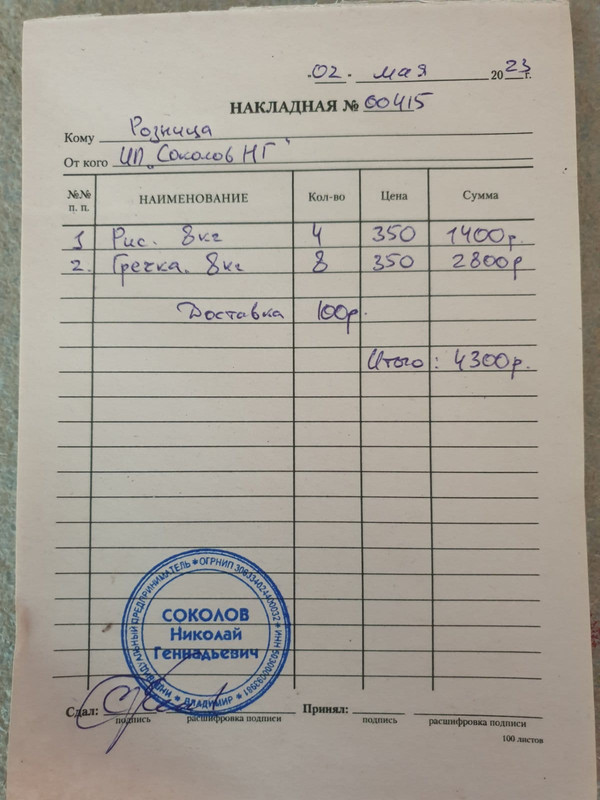 02 мая 2023 г.
НАКЛАДНАЯ № 00415
Кому Розница
От кого ИП "Соколов НГ"
№№ п. п. НАИМЕНОВАНИЕ Кол-во Цена Сумма
1 Рис. 8кг 4 350 1400р.
2. Гречка. 8кг 8 350 2800р
Доставка 100р.
Итого: 4300р.
ИНДИВИДУАЛЬНЫЙ ПРЕДПРИНИМАТЕЛЬ * ОГРНИП
* ВЛАДИМИР *
СОКОЛОВ
Николай
Геннадьевич
Сдал: Принял:
подпись расшифровка подписи подпись расшифровка подписи
100 листов